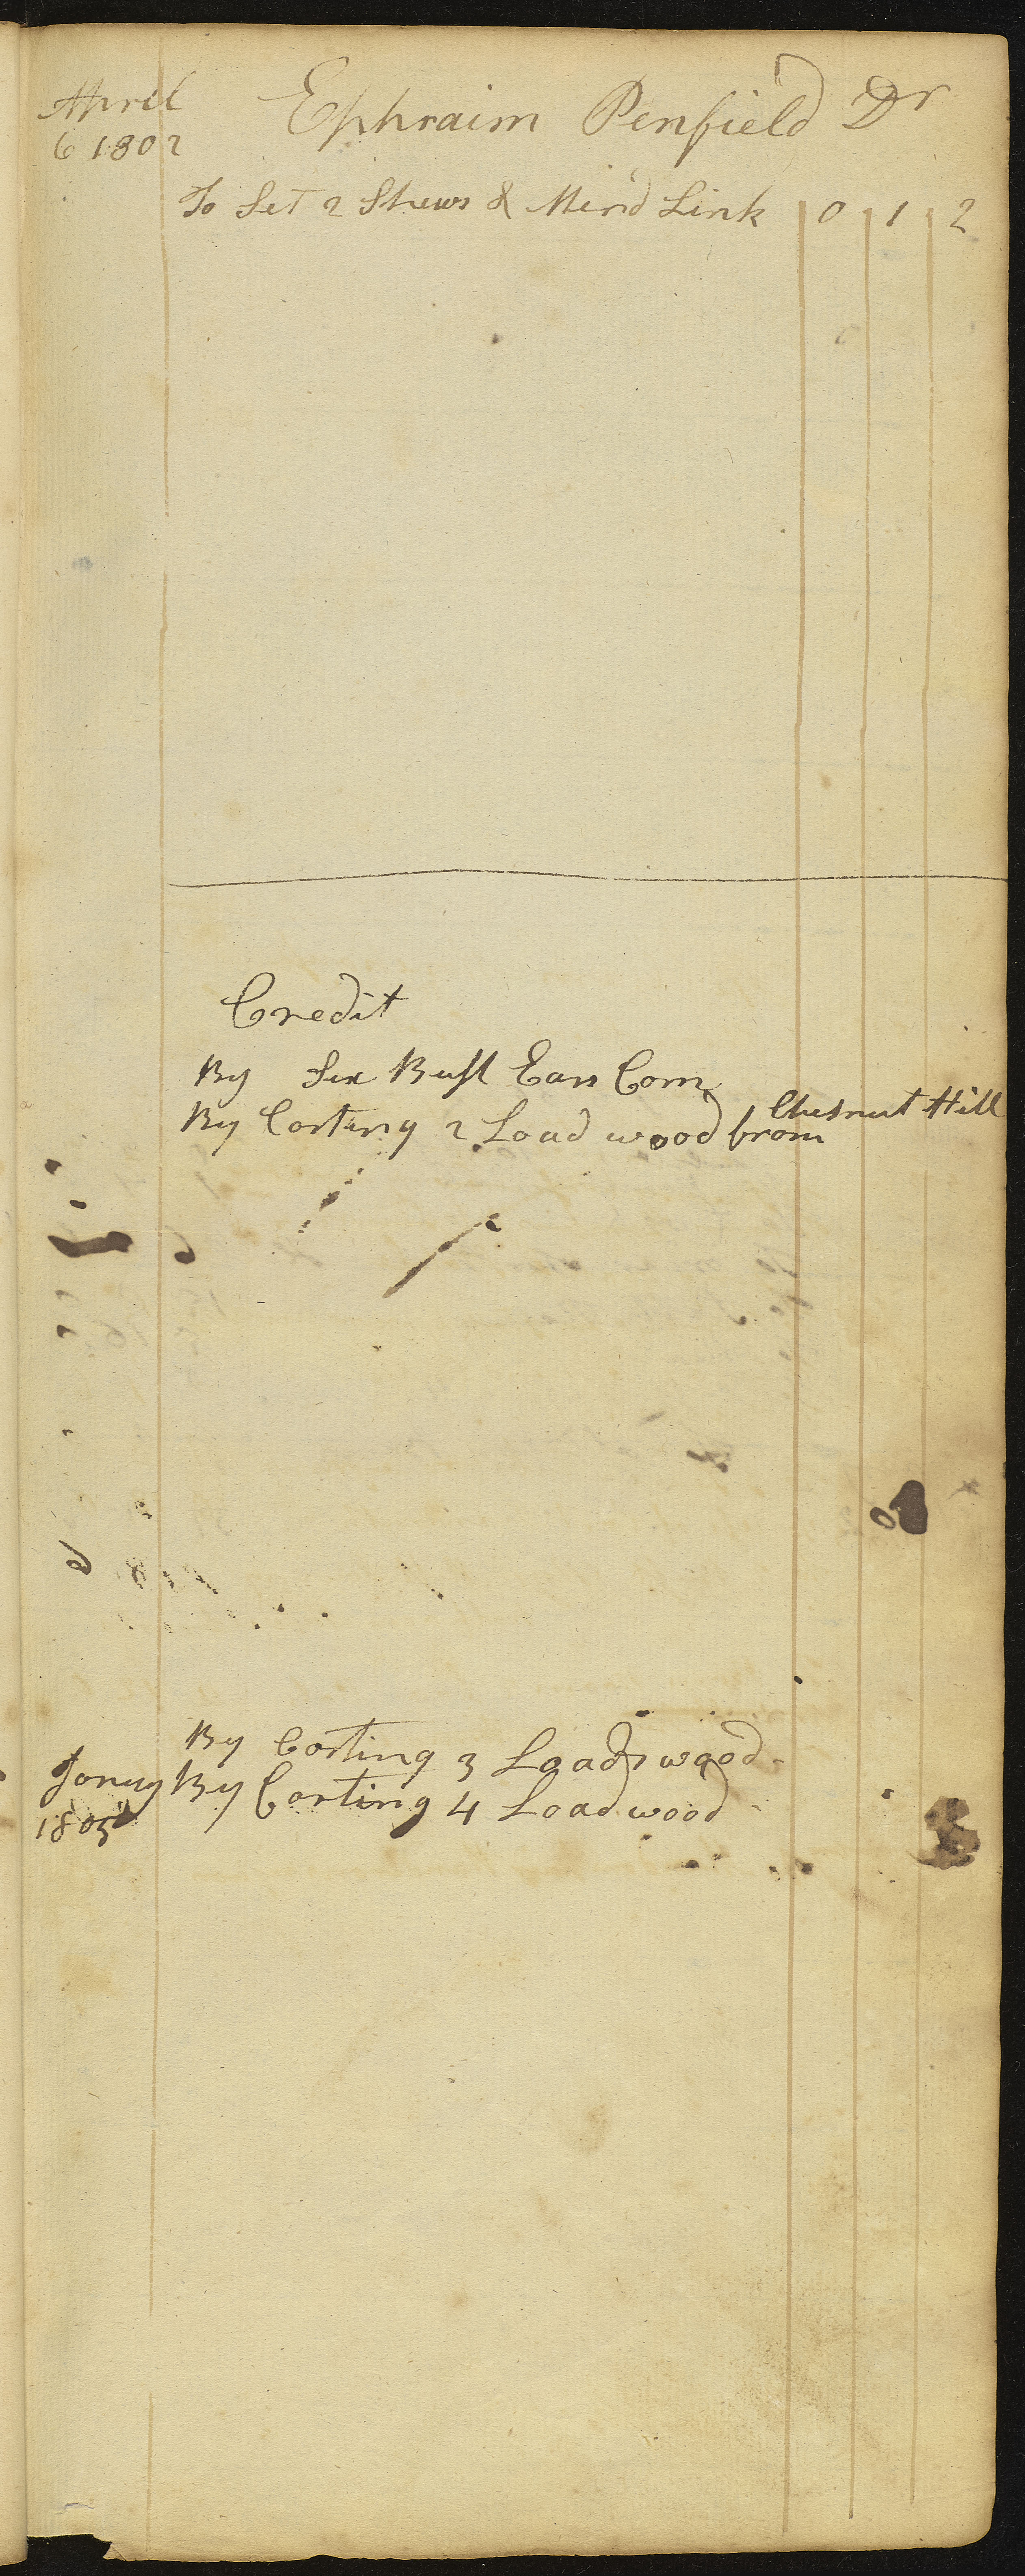 April Ephraim Penfield Dr
6 1802
To Set 2 Shews & Mend Link 0 1 2
Credit
By Six Bush Ears Corn
By Carting 2 Load wood from Chesnut Hill
By Carting 3 Loads wood
Janury By Carting 4 Load wood
1803